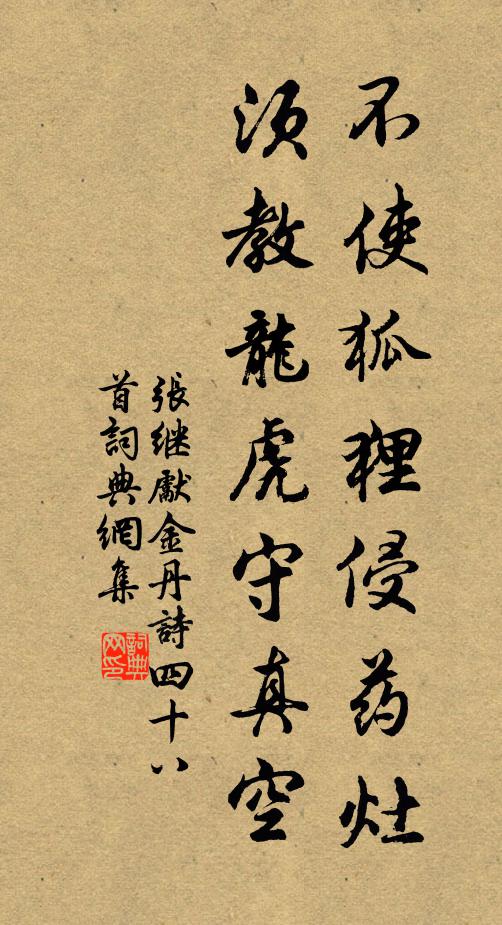 不使狐狸侵药灶
须教龍虎守真空
張继獻金丹詩四十八
首詞典網集
詞典
网印